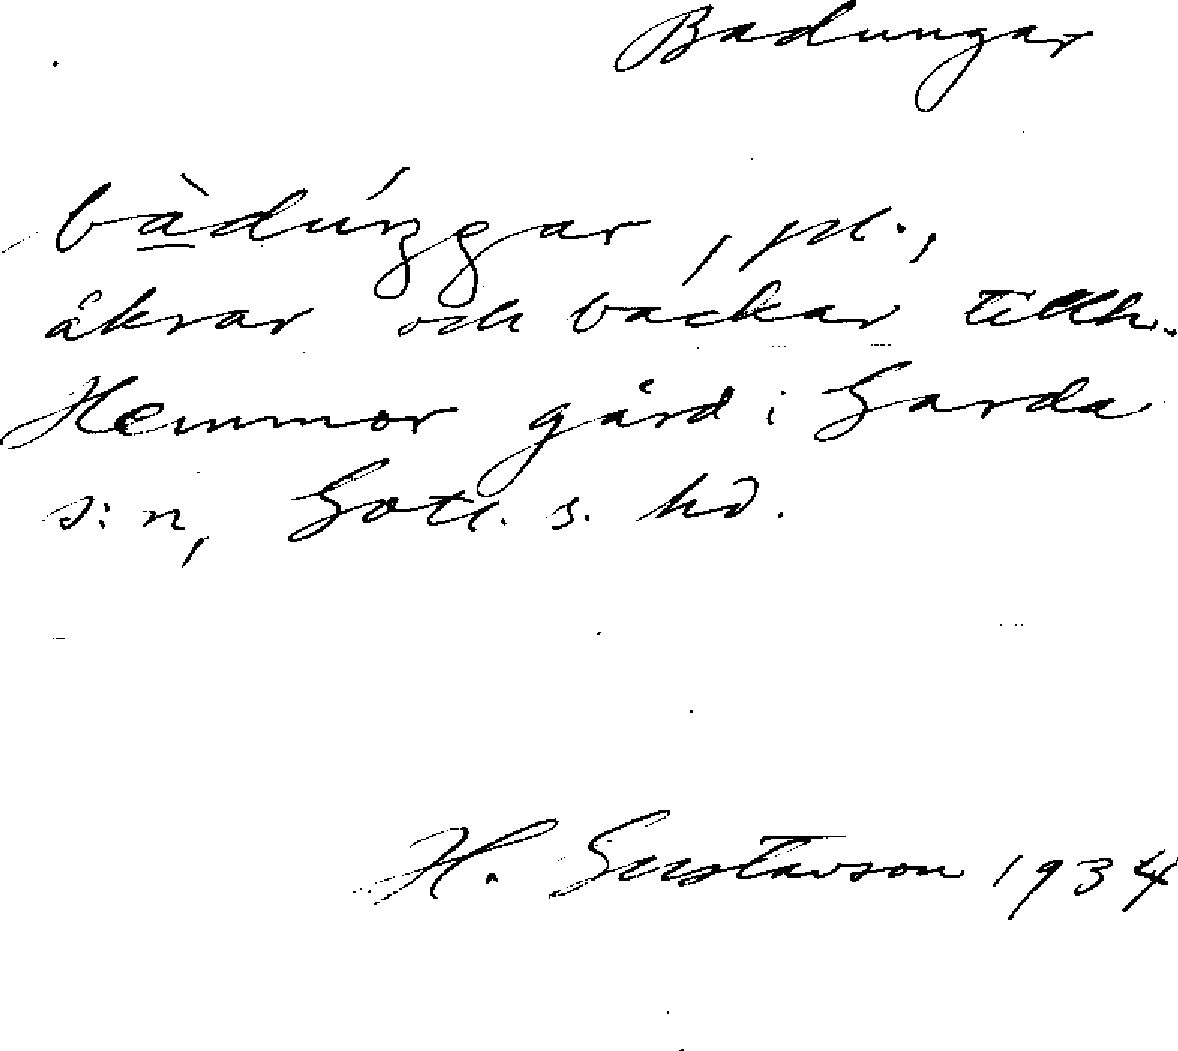 Badungar
bà̱dúŋgar, pl.,
åkrar och backar tillh.
Hemmor gård i Garda
s:n, Gotl. s. hd.
H. Gustavson 1934